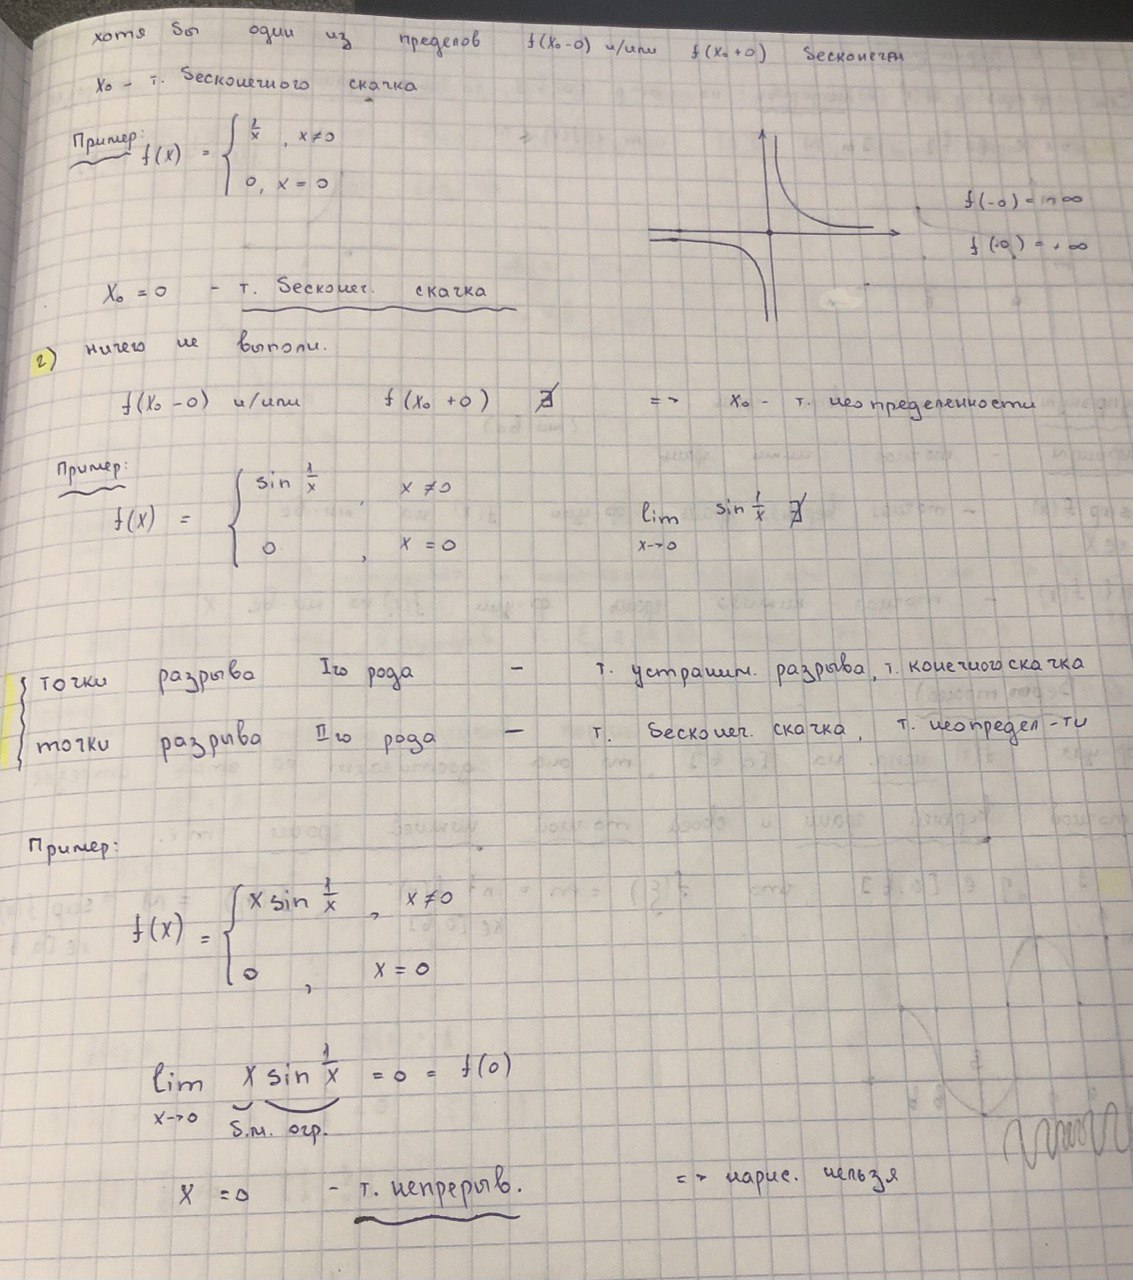 хотя бы один из пределов f(x₀-0) и/или f(x₀+0) бесконечен
x₀ - т. бесконечного скачка
Пример: f(x) = { 1/x , x≠0
0, x = 0
f(-0) = -∞
f(+0) = +∞
x₀ = 0 - т. бесконеч. скачка
2) ничего не выполн.
f(x₀-0) и/или f(x₀+0) ∄ => x₀ - т. неопределенности
Пример:
f(x) = { sin 1/x , x≠0
0 , x = 0
lim x→0 sin 1/x ∄
{ точки разрыва Iго рода - т. устраним. разрыва, т. конечного скачка
точки разрыва IIго рода - т. бесконеч. скачка, т. неопредел-ти
Пример:
f(x) = { x sin 1/x , x≠0
0 , x = 0
lim x→0 x sin 1/x = 0 = f(0)
б.м. огр.
x = 0 - т. непрерыв. => нарис. нельзя